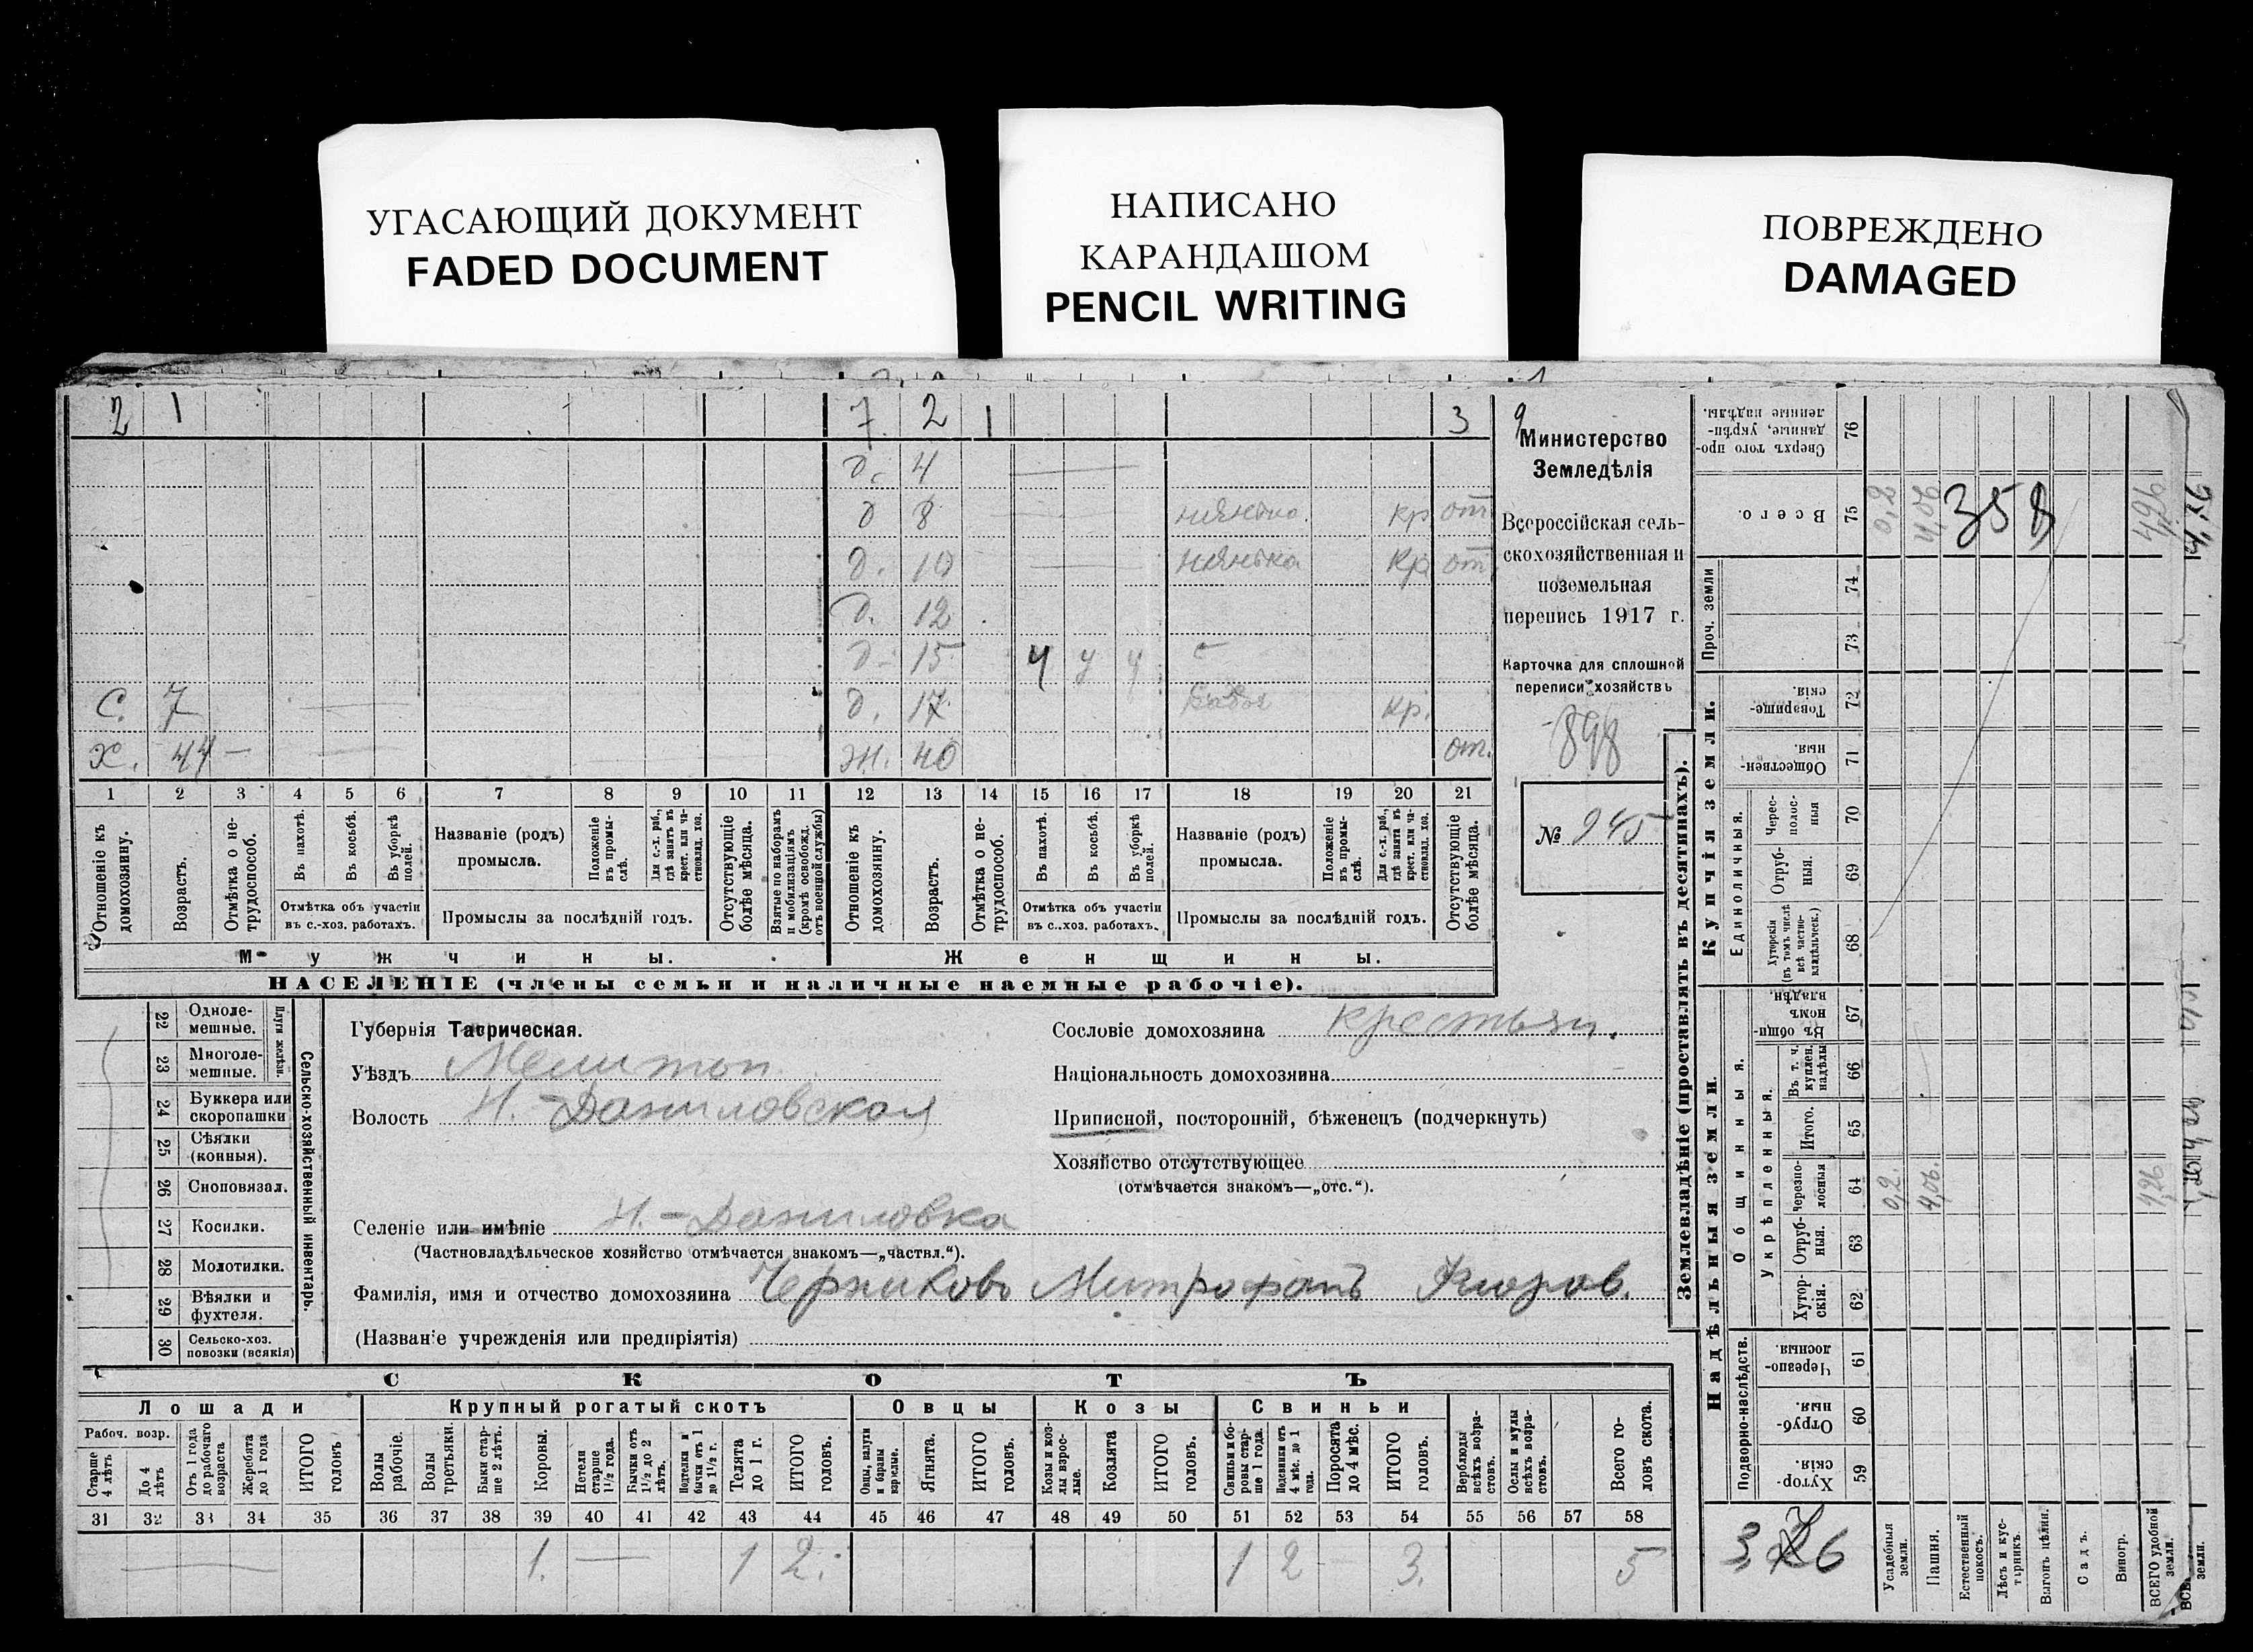 УГАСАЮЩИЙ ДОКУМЕНТ
FADED DOCUMENT
НАПИСАНО
КАРАНДАШОМ
PENCIL WRITING
ПОВРЕЖДЕНО
DAMAGED
2 1 7 2 1 3
д. 4
д 8 нянька кр от
д. 10 нянька Кр от
д. 12
д. 15 ч у у
С. 7 д. 17 кр.
Х. 44 — Ж. 40 от.
1 2 3 4 5 6 7 8 9 10 11 12 13 14 15 16 17 18 19 20 21
Отношеніе къ домохозяину.
Возрастъ.
Отмѣтка о не-трудоспособ.
Въ пахотѣ.
Въ косьбѣ.
Въ уборкѣ полей.
Отмѣтка объ участіи въ с.-хоз. работахъ.
Названіе (родъ) промысла.
Положеніе въ промы-слѣ.
Для с.-х. раб., гдѣ занятъ въ крест. или ча-стновлад. хоз.
Промыслы за послѣдній годъ.
Отсутствующіе болѣе мѣсяца.
Взятые по наборамъ и мобилизаціямъ (кромѣ освобожд. отъ военной службы)
Отношеніе къ домохозяину.
Возрастъ.
Отмѣтка о не-трудоспособ.
Въ пахотѣ.
Въ косьбѣ.
Въ уборкѣ полей.
Отмѣтка объ участіи въ с.-хоз. работахъ.
Названіе (родъ) промысла.
Положеніе въ промы-слѣ.
Для с.-х. раб., гдѣ занята въ крест. или ча-стновлад. хоз.
Промыслы за послѣдній годъ.
Отсутствующіе болѣе мѣсяца.
Мужчины. Женщины.
НАСЕЛЕНІЕ (члены семьи и наличные наемные рабочіе).
Министерство
Земледѣлія
Всероссійская сель-
скохозяйственная и
поземельная
перепись 1917 г.
Карточка для сплошной
переписи хозяйствъ
898
№ 245
22 Одноле-мешные.
23 Многоле-мешные.
Плуги желѣзн.
24 Буккера или скоропашки
25 Сѣялки (конныя).
26 Сноповязал.
27 Косилки.
28 Молотилки.
29 Вѣялки и фухтеля.
30 Сельско-хоз. повозки (всякія)
Сельско-хозяйственный инвентарь.
Губернія Таврическая.
Уѣздъ Мелитоп
Волость Н.-Даниловская
Селеніе или имѣніе Н.-Даниловка
(Частновладѣльческое хозяйство отмѣчается знакомъ—„частвл.“).
Фамилія, имя и отчество домохозяина Черниковъ Митрофанъ
(Названіе учрежденія или предпріятія)
Сословіе домохозяина крестьян.
Національность домохозяина
Приписной, посторонній, бѣженецъ (подчеркнуть)
Хозяйство отсутствующее
(отмѣчается знакомъ—„отс.“).
СКОТЪ
Лошади Крупный рогатый скотъ Овцы Козы Свиньи
Рабоч. возр.
Старше 4 лѣтъ
До 4 лѣтъ
Отъ 1 года до рабочаго возраста
Жеребята до 1 года
ИТОГО головъ
Волы рабочіе.
Волы третьяки.
Быки стар-ше 2 лѣтъ.
Коровы.
Нетели старше 1½ года.
Бычки отъ 1½ до 2 лѣтъ.
Подтелки и бычки отъ 1 до 1½ г.
Телята до 1 г.
ИТОГО головъ.
Овцы, валухи и бараны взрослые.
Ягнята.
ИТОГО головъ.
Козы и коз-лы взрос-лые.
Козлята
ИТОГО головъ.
Свиньи и бо-ровы стар-ше 1 года.
Подсвинки отъ 4 мѣс. до 1 года.
Поросята до 4 мѣс.
ИТОГО головъ.
Верблюды всѣхъ возра-стовъ.
Ослы и мулы всѣхъ возра-стовъ.
Всего го-ловъ скота.
31 32 33 34 35 36 37 38 39 40 41 42 43 44 45 46 47 48 49 50 51 52 53 54 55 56 57 58
1. — 1 2. 1 2 — 3. 5
Землевладѣніе (проставлять въ десятинахъ).
Надѣльныя земли.
Купчія земли.
Проч. земли
76 Сверхъ того про-данные, укрѣп-ленные надѣлы.
75 Всего.
74
73
72 Товарище-скія.
71 Обществен-ныя.
Единоличныя.
70 Черес-полос-ныя
69 Отруб-ныя.
68 Хуторскія (въ томъ числѣ всѣ частно-владѣльческ.)
Общинныя.
67 Въ общи-номъ владѣн.
Укрѣпленныя.
66 Въ т. ч. куплен. надѣлы
65 Итого.
64 Черезпо-лосныя
63 Отруб-ныя.
62 Хутор-скія.
Подворно-наслѣдств.
61 Черезпо-лосныя.
60 Отруб-ныя.
59 Хутор-скія.
0,2 4,06 358 4,26
0,2. 4,06. 4,26
Усадебныя земли.
Пашня.
Естественный покосъ.
Лѣсъ и кус-тарникъ.
Выгонъ цѣлин.
Садъ.
Виногр.
ВСЕГО удобной земли.
земли.